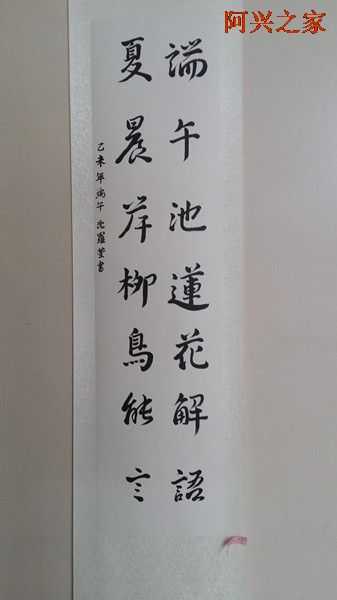 阿兴之家
端午池蓮花解語
夏晨岸柳鳥能言
乙未年端午 沈羅萱書